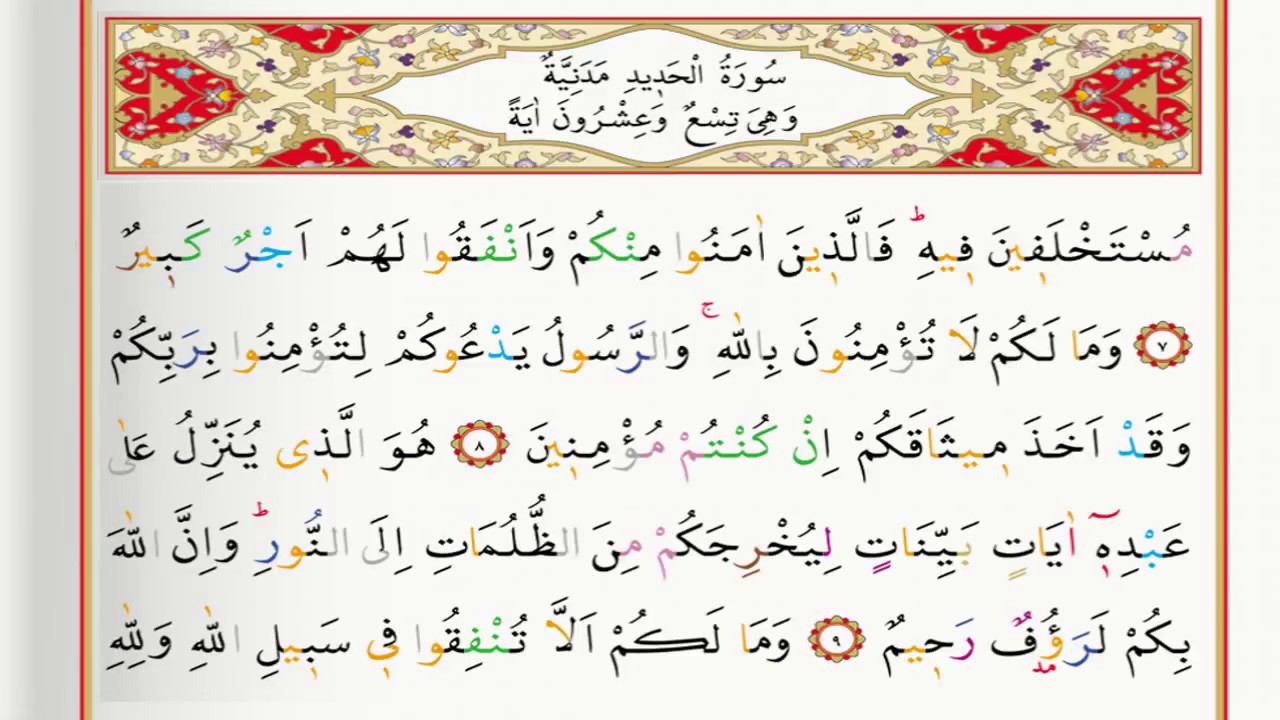 سُورَةُ الْحَدِيدِ مَدَنِيَّةٌ
وَهِىَ تِسْعٌ وَعِشْرُونَ اٰيَةً
مُسْتَخْلَفٖينَ فٖيهِؕ فَالَّذٖينَ اٰمَنُوا مِنْكُمْ وَاَنْفَقُوا لَهُمْ اَجْرٌ كَبٖيرٌ
﴿٧﴾ وَمَا لَكُمْ لَا تُؤْمِنُونَ بِاللّٰهِۚ وَالرَّسُولُ يَدْعُوكُمْ لِتُؤْمِنُوا بِرَبِّكُمْ
وَقَدْ اَخَذَ مٖيثَاقَكُمْ اِنْ كُنْتُمْ مُؤْمِنٖينَ ﴿٨﴾ هُوَ الَّذٖى يُنَزِّلُ عَلٰى
عَبْدِهٖٓ اٰيَاتٍ بَيِّنَاتٍ لِيُخْرِجَكُمْ مِنَ الظُّلُمَاتِ اِلَى النُّورِؕ وَاِنَّ اللّٰهَ
بِكُمْ لَرَؤُفٌ رَحٖيمٌ ﴿٩﴾ وَمَا لَكُمْ اَلَّا تُنْفِقُوا فٖى سَبٖيلِ اللّٰهِ وَلِلّٰهِ